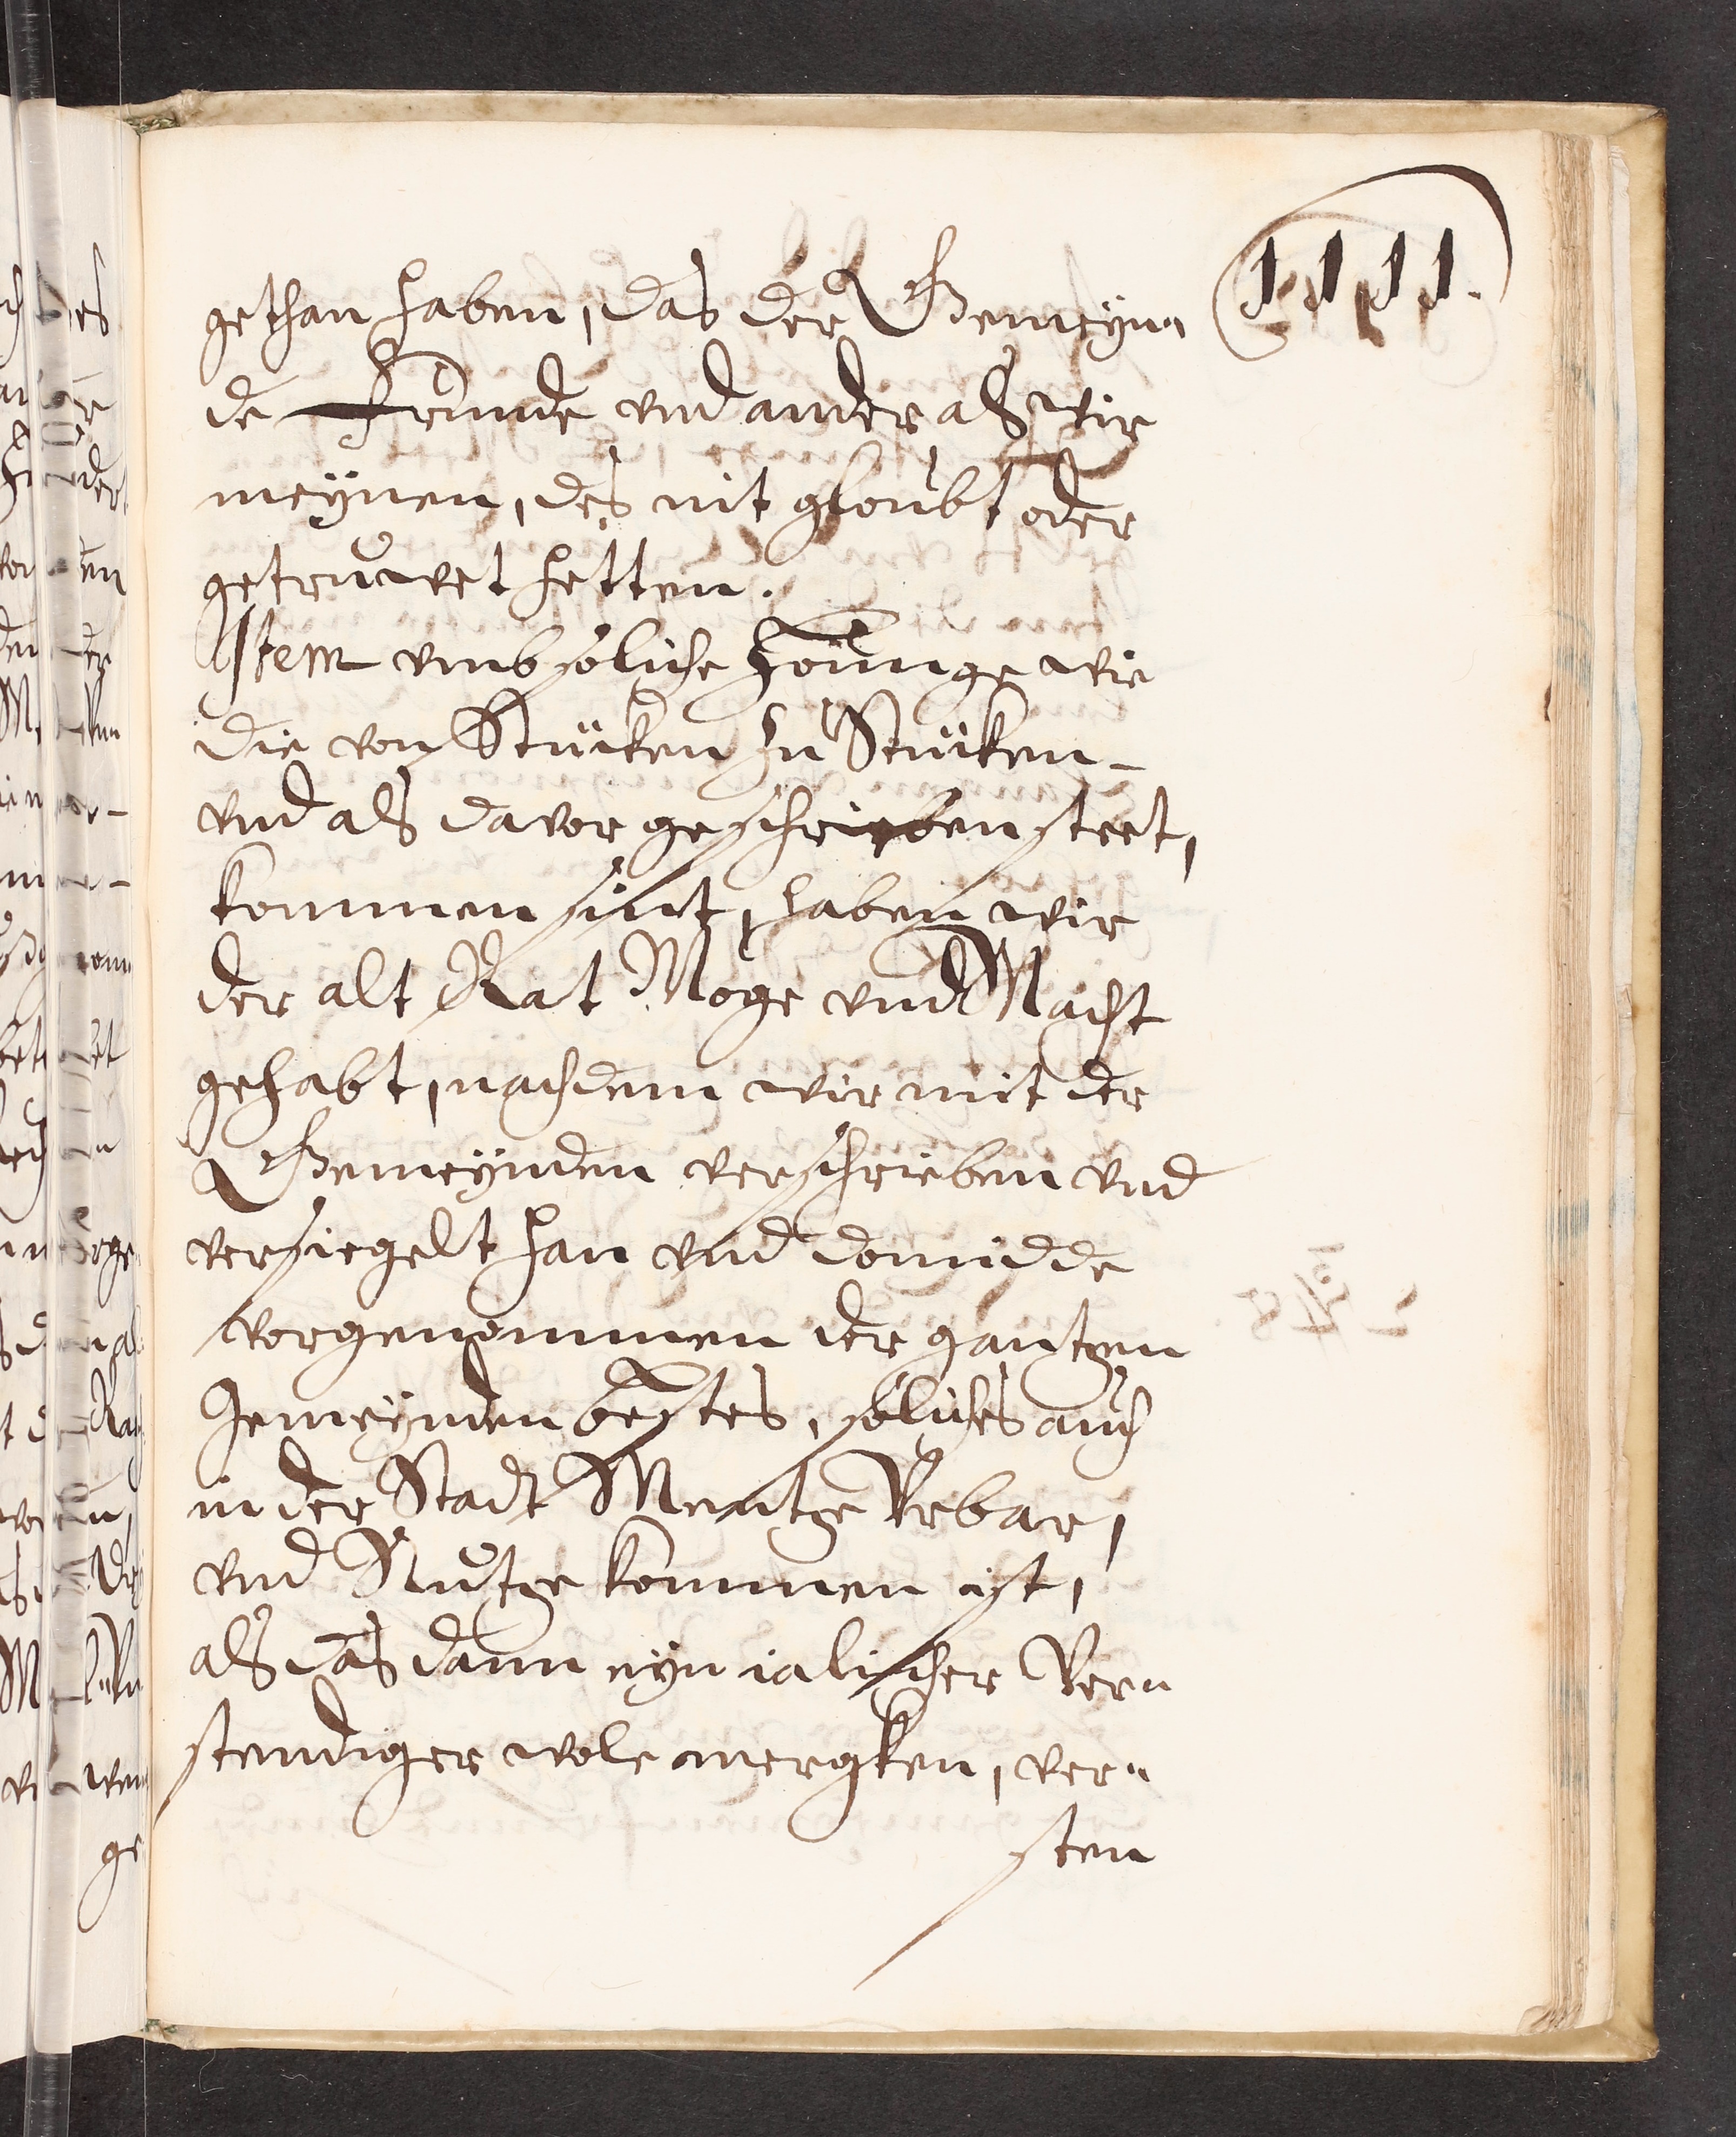 1111.
gethan haben, das der Gemeyn„
de Frunde vnd ander als wir
meÿnen, des nit gloubt oder
getruwet hetten.
Item vmb soliche Zounge wie
die von Stucken zu Stucken
vnd als davor geschrieben steet,
kommen sint, haben wir
der alt Rat Moge vnd Macht
gehabt, nachdem wir mit der
Gemeÿnden verschrieben vnd
versiegelt han vnd domidde
vorgenommen der gantzen
Gemeÿnden bestes, soliches auch
in der Stadt Mentze Vrbar,
vnd Nutze kommen ist,
als das dann eyn ialicher Ver„
stendiger wole mergken, ver„
sten